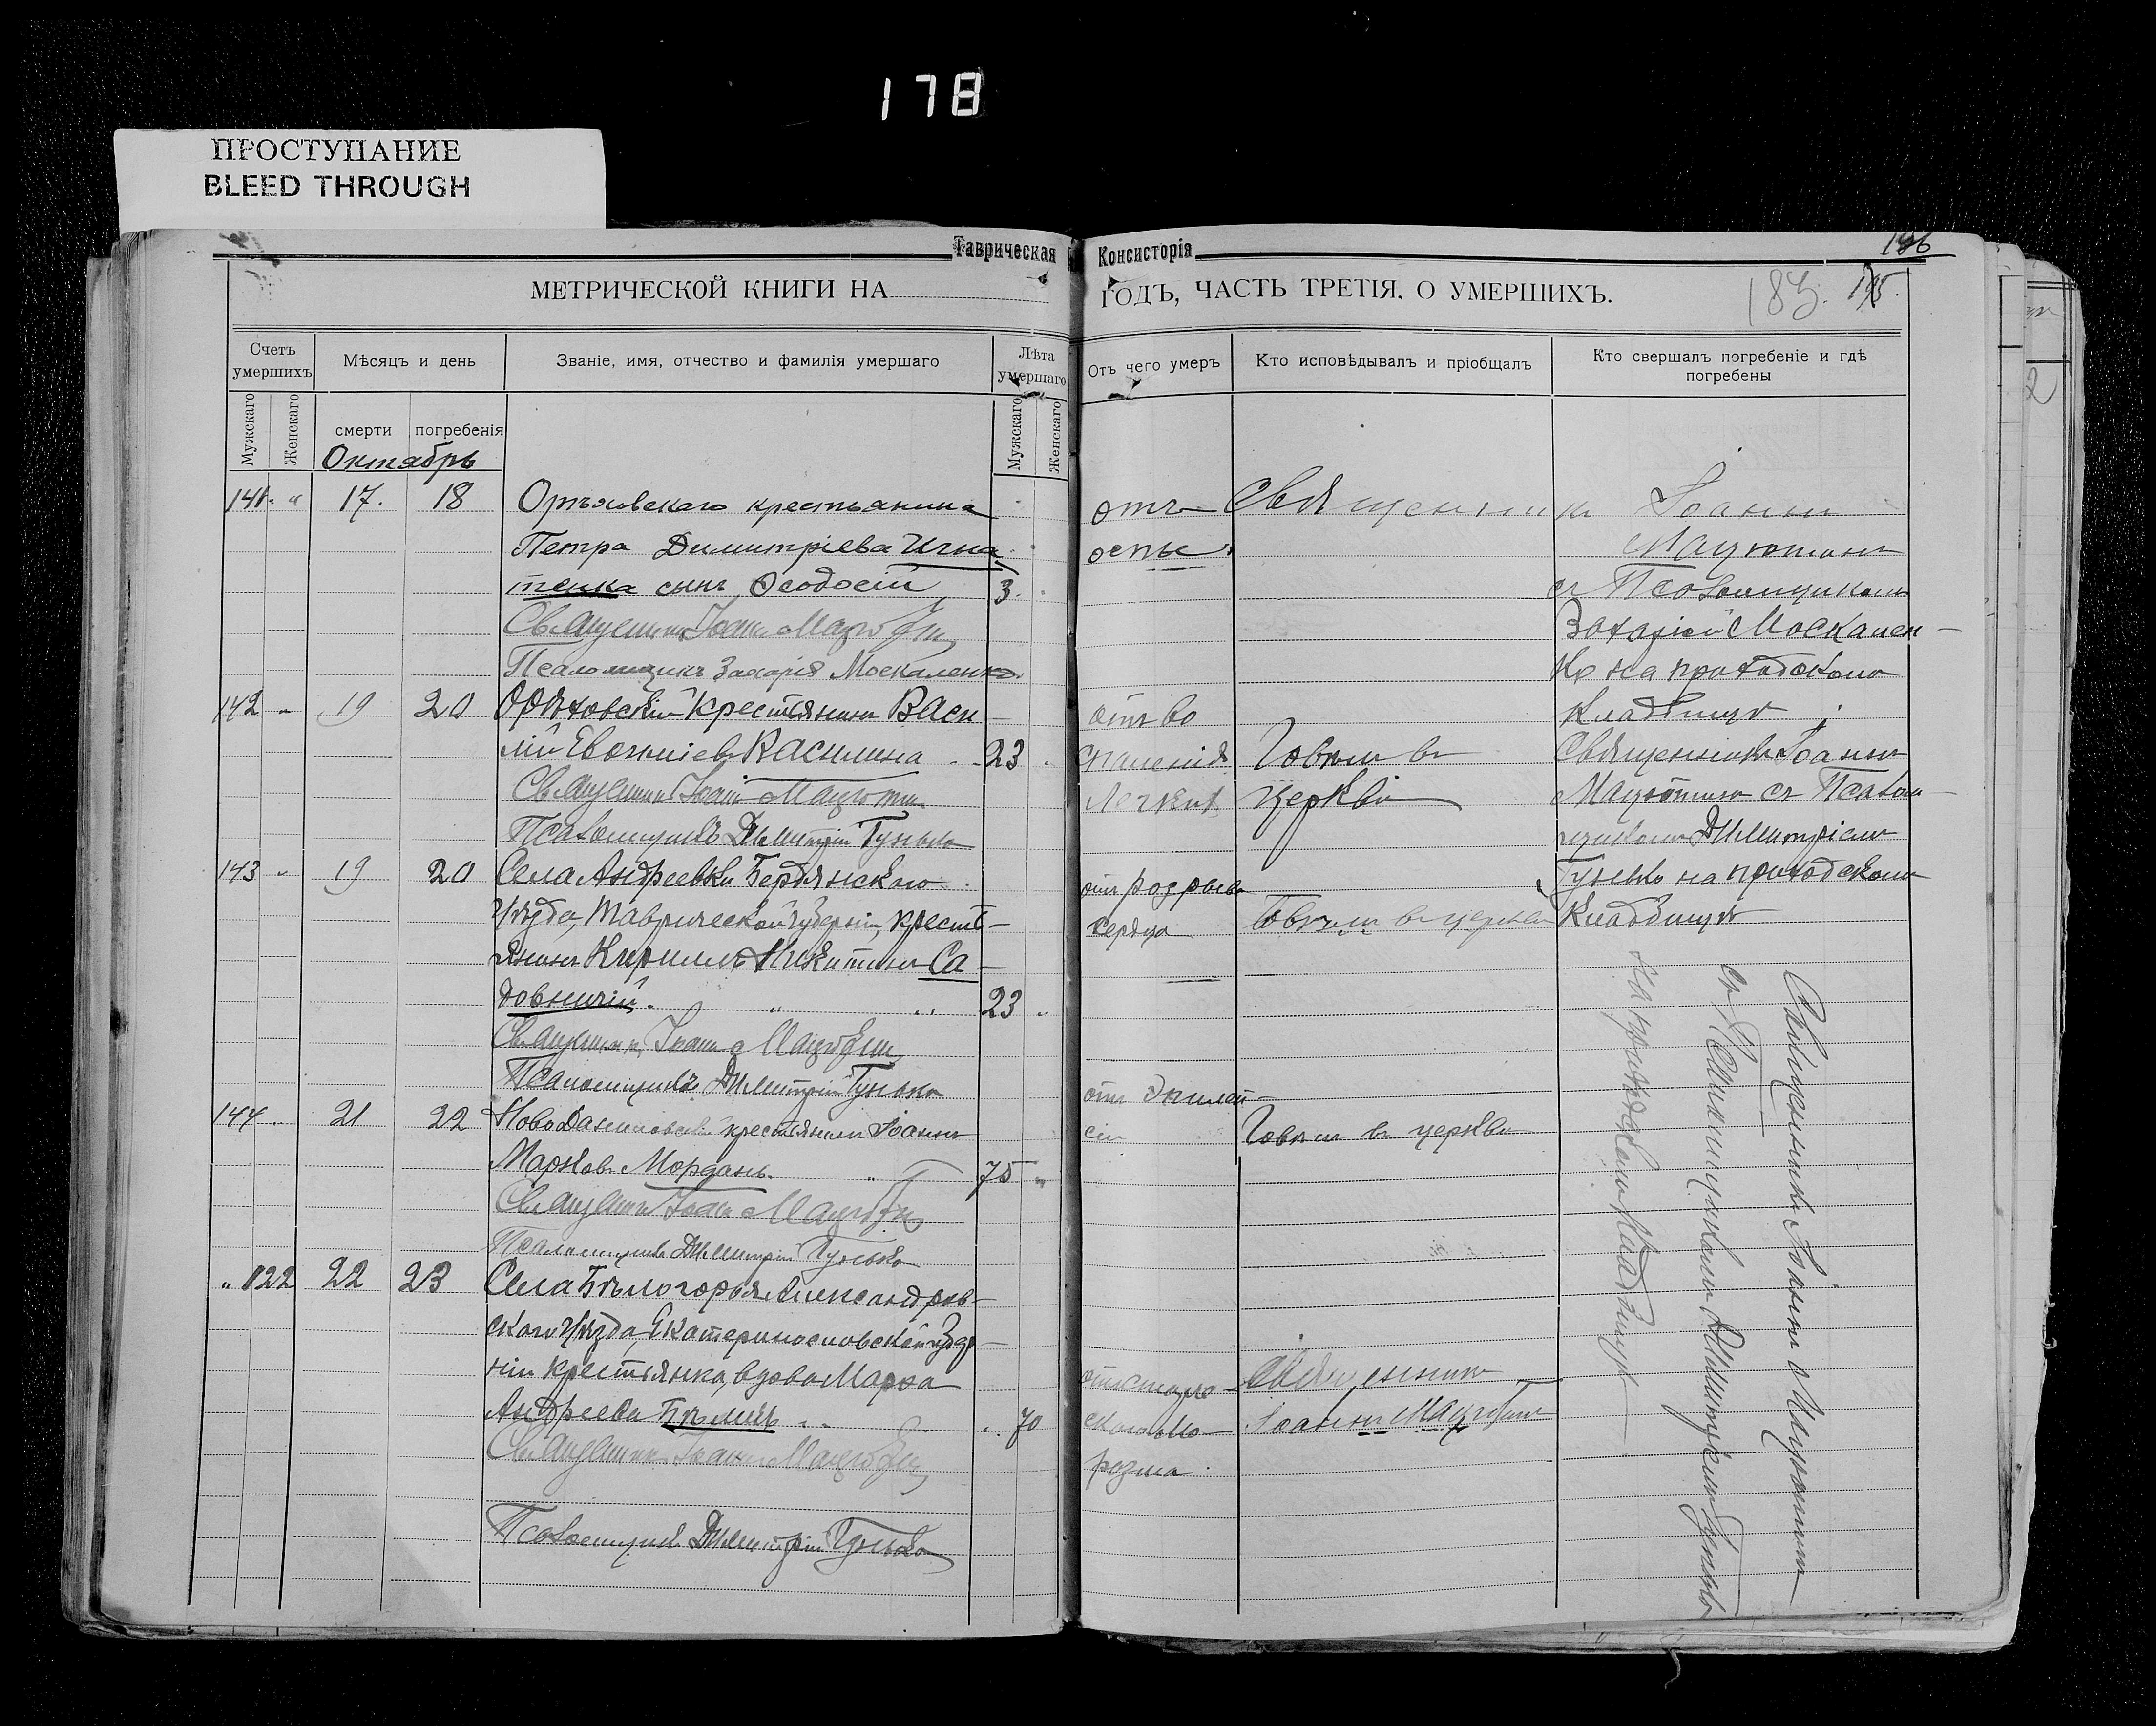 178
ПРОСТУПАНИЕ
BLEED THROUGH
Таврическая Консисторія
196
МЕТРИЧЕСКОЙ КНИГИ НА ГОДЪ, ЧАСТЬ ТРЕТІЯ, О УМЕРШИХЪ.
183. 195.
Счетъ умершихъ
Мѣсяцъ и день
Званіе, имя, отчество и фамилія умершаго
Лѣта умершаго
Отъ чего умеръ
Кто исповѣдывалъ и пріобщалъ
Кто свершалъ погребеніе и гдѣ
погребены
Мужскаго
Женскаго
смерти
погребенія
Мужскаго
Женскаго
Октябрь
141. " 17. 18 Орѣховскаго крестьянина
Петра Димитріева Игна
тенка сынъ Ѳеодосій 3.
Священникъ Іоаннъ
Псаломщикъ Захарія Москаленко
142 " 19 20 Орѣховскій крестьянинъ Васи
лій Евфиміевъ 23
Священникъ Іоаннъ
Псаломщикъ Димитрій Гунько
143 " 19 20 Села Андреевки Бердянскаго
Уѣзда, Таврической губерніи, крестъ-
янинъ Кириллъ Никитинъ Са-
довничій. " " 23 "
Священникъ Іоаннъ
Псаломщикъ Димитрій Гунько
144 " 21 22 Новоданиловскій крестьянинъ Іоаннъ
Марковъ Мордань " 75 "
Священникъ Іоаннъ
Псаломщикъ Димитрій Гунько
" 122 22 23 Села Бѣлогорья Александров-
скаго Уѣзда, Екатеринославской губер-
ніи крестьянка, вдова Марѳа
Андреева 70
Священникъ Іоаннъ
Псаломщикъ Димитрій Гунько
отъ
оспы
отъ во
спаленія
легкихъ
отъ разрыва
сердца
отъ эпилеп-
сіи
отъ старче-
скаго ма-
разма.
Священникъ Іоаннъ
съ Псаломщикомъ
Захаріей Москален-
ко на приходскомъ
кладбищѣ;
Говѣлъ въ
церкви
Священникъ Іоаннъ
съ Псалом-
щикомъ Димитріемъ
Гунько на приходскомъ
кладбищѣ
Говѣлъ въ церкви
Говѣлъ въ церкви
Священникъ
Іоаннъ
Священникъ Іоаннъ
съ Псаломщикомъ Димитріемъ Гунько
на приходскомъ кладбищѣ
2